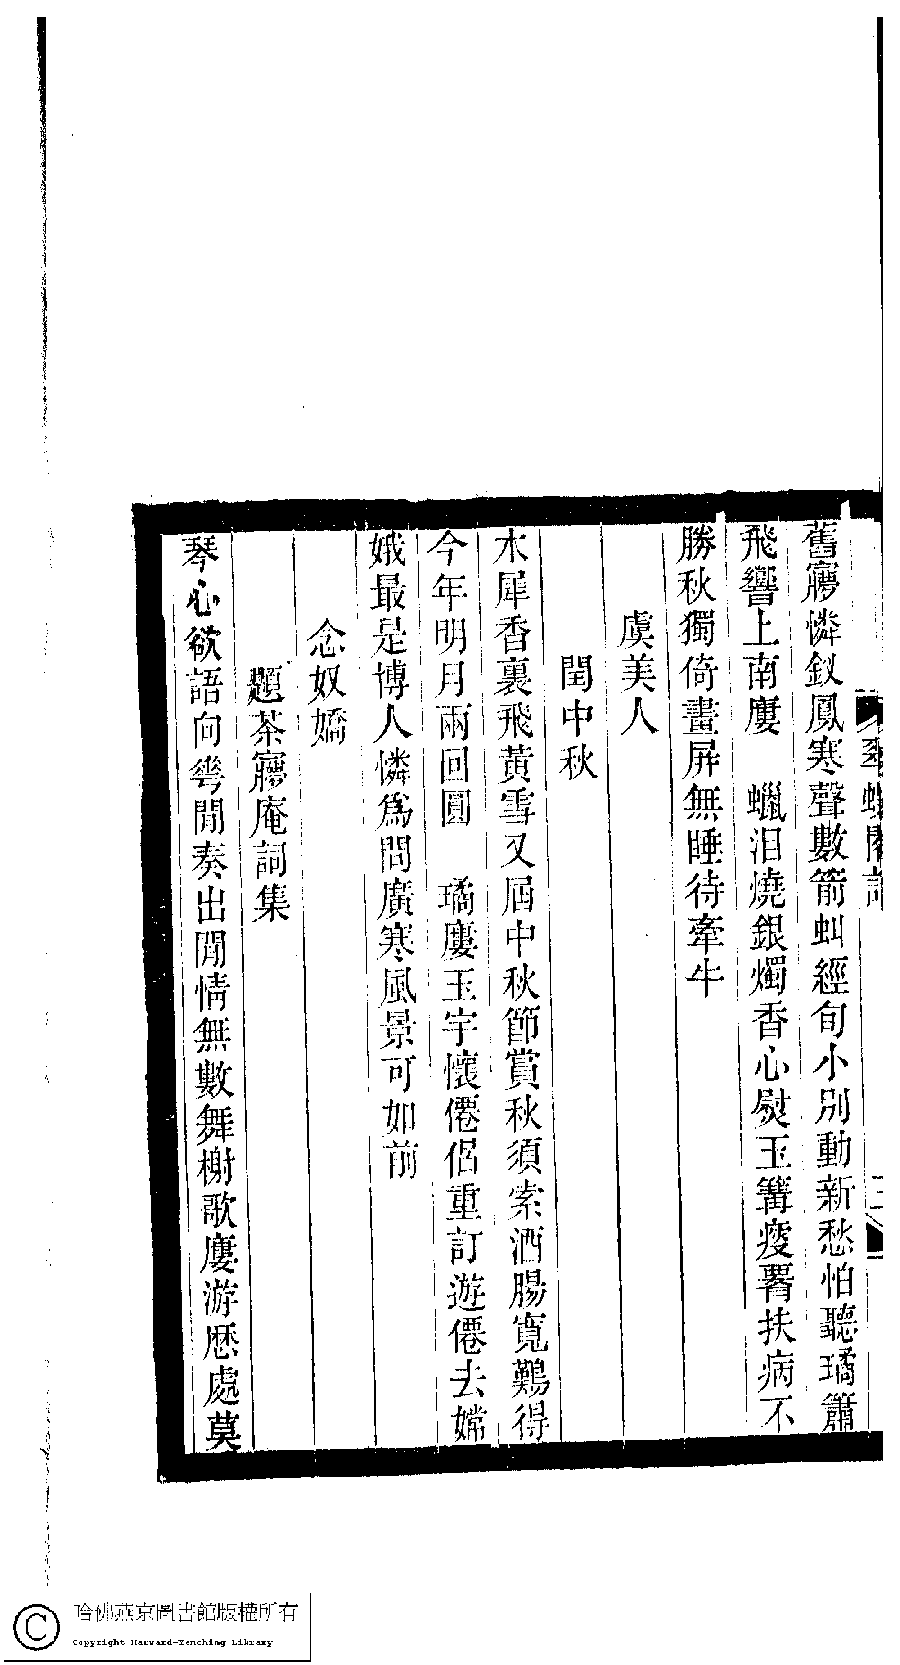 舊㝱憐釵鳳寒聲數箭虯經旬小別動新愁怕聽璚簫
飛響上南廔　蠟泪燒銀燭香心熨玉篝瘦羂扶病不
勝秋獨倚畫屏無睡待牽牛
虞美人
閏中秋
木犀香裏飛黃雪又屆中秋節賞秋須索酒腸寬難得
今年明月兩回圓　璚廔玉宇懷僊侶重訂遊僊去嫦
娥最是博人憐爲問廣寒風景可如前
念奴嬌
題茶㝱庵詞集
琴心欲語向㠭閒奏出閒情無數舞榭歌廔游歷處莫
哈佛燕京圖書館版權所有
Copyright Harvard-Yenching Library